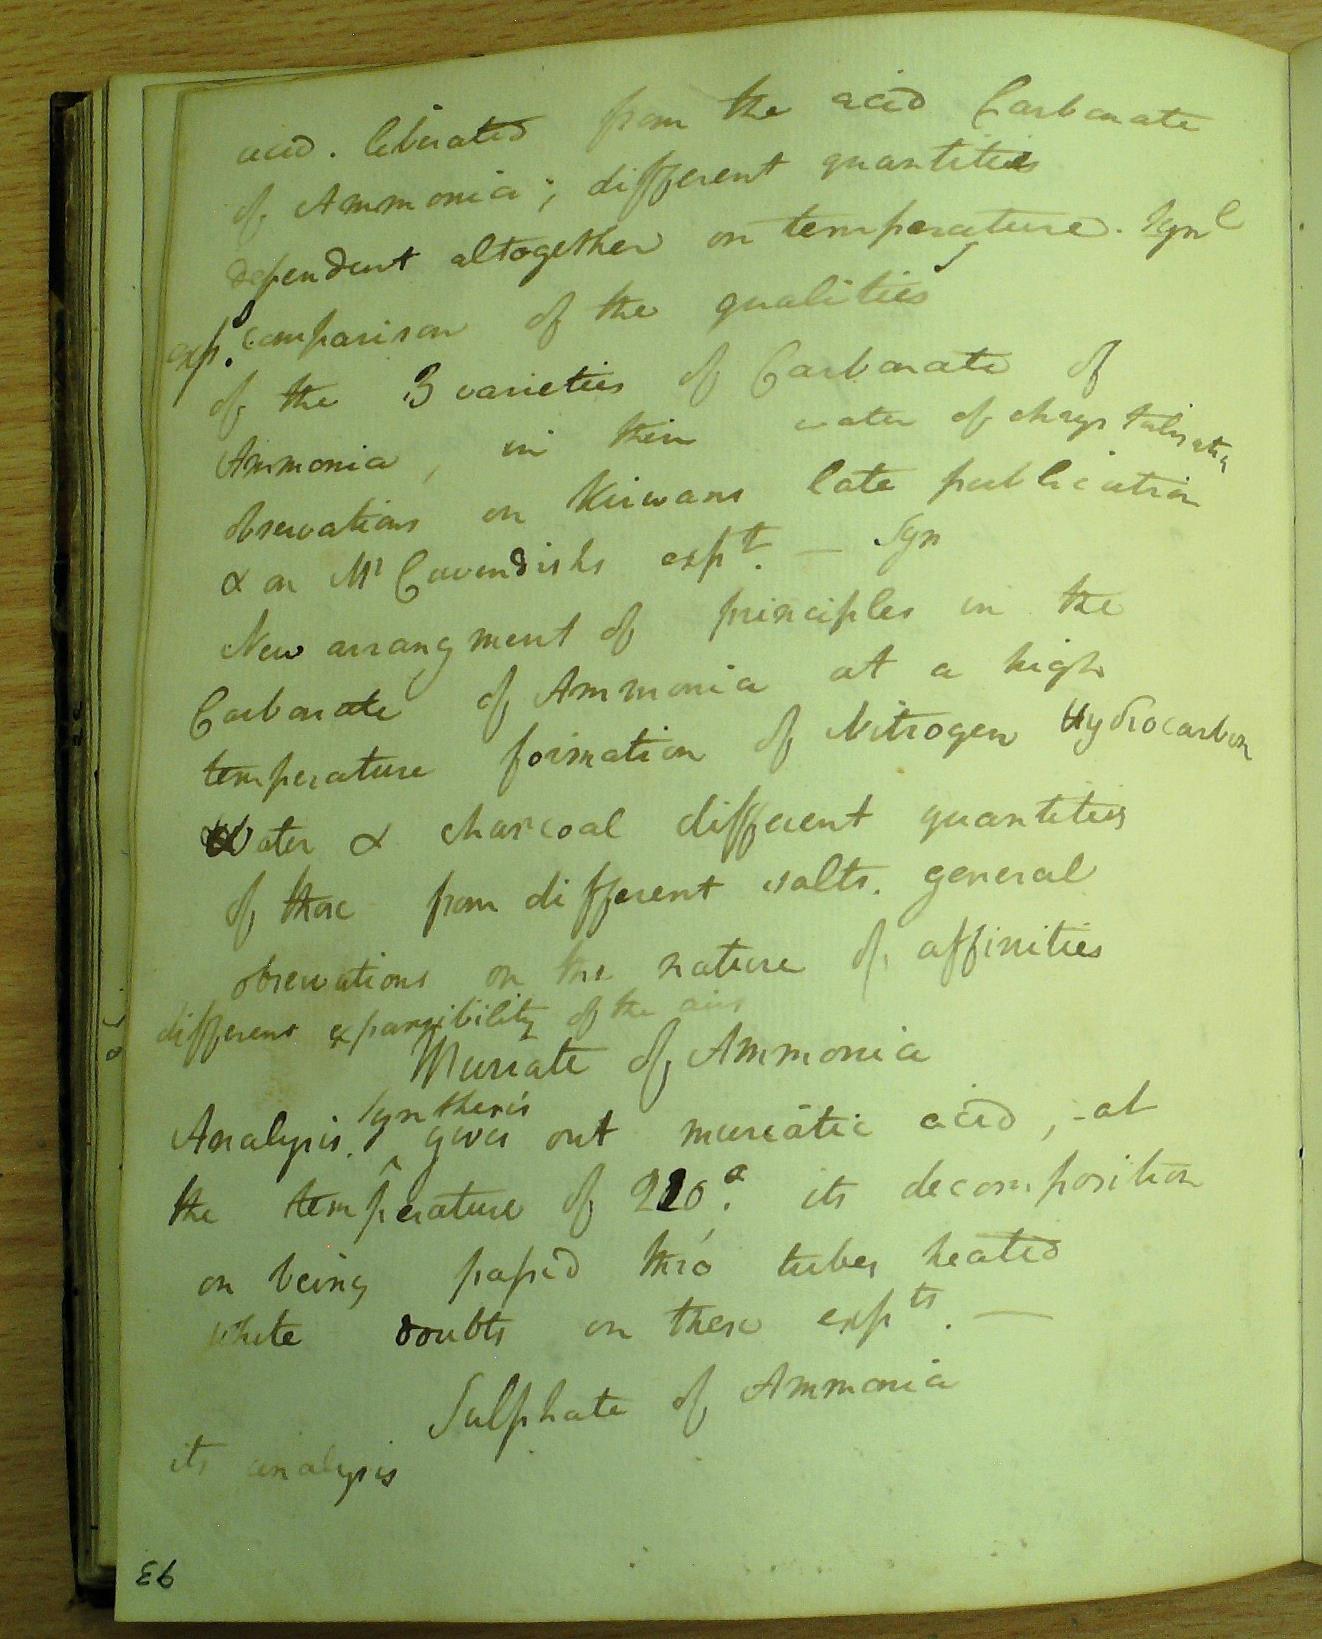 acid. liberated from the acid Carbonate
of Ammonia; different quantities
dependent altogether on temperature. Synl
exps. comparison of the qualities
of the 3 varieties of Carbonate of
Ammonia, in their water of chrystalisation
observations on Kirwans late publication
& on Mr Cavendishs expt. — Syn
New arrangment of principles in the
Carbonate of Ammonia at a high
temperature formation of Nitrogen Hydrocarbon
Water & charcoal different quantities
of these from different salts. general
observations on the nature of affinities
different expansibility of the airs
Muriate of Ammonia
Analysis. Synthesis gives out muriatic acid, -at
the temperature of 210°. its decomposition
on being passed thro' tubes heated
white doubts on these expts. —
Sulphate of Ammonia
its analysis
93